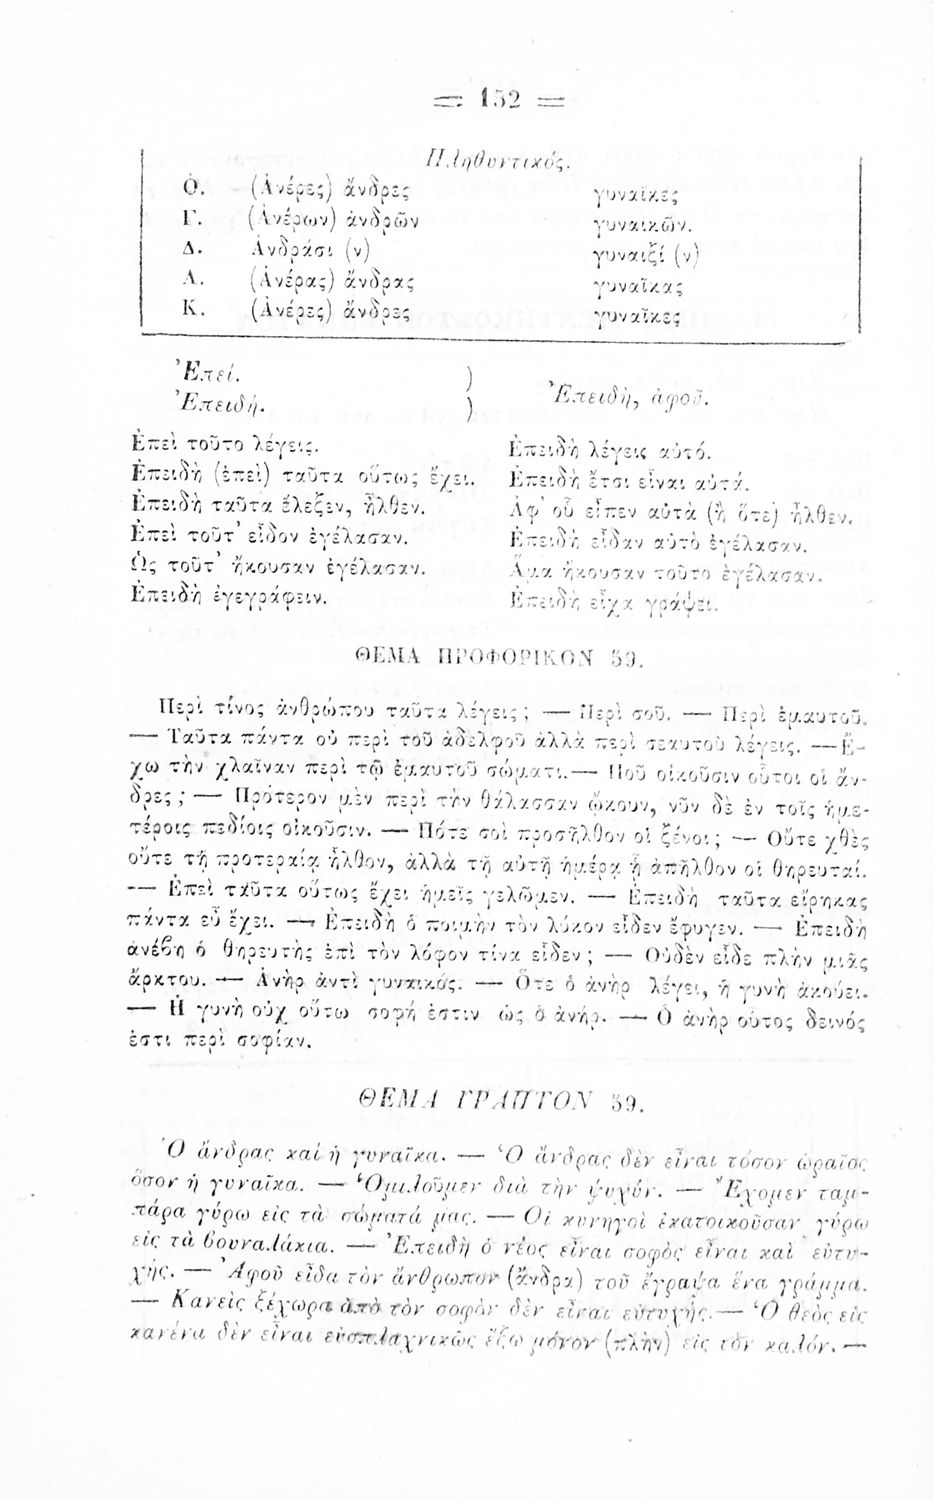 = 152 =
Πληθυντικός.
Ὀ. (Ἀνέρες) ἄνδρες γυναῖκες
Γ. (Ἀνέρων) ἀνδρῶν γυναικῶν.
Δ. Ἀνδράσι (ν) γυναιξί (ν)
Α. (Ἀνέρας) ἄνδρας γυναῖκας
Κ. (Ἀνέρες) ἄνδρες γυναῖκες
Ἐπεί. )
Ἐπειδή. ) Ἐπειδὴ, ἀφοῦ.
Ἐπεὶ τοῦτο λέγεις. Ἐπειδὴ λέγεις αὐτό.
Ἐπειδὴ (ἐπεὶ) ταῦτα οὕτως ἔχει. Ἐπειδὴ ἔτσι εἶναι αὐτά.
Ἐπειδὴ ταῦτα ἔλεξεν, ἦλθεν. Ἀφ' οὗ εἶπεν αὐτὰ (ἢ ὅτε) ἦλθεν.
Ἐπεὶ τοῦτ' εἶδον ἐγέλασαν. Ἐπειδὴ εἶδαν αὐτὸ ἐγέλασαν.
Ὡς τοῦτ' ἤκουσαν ἐγέλασαν. Ἅμα ἤκουσαν τοῦτο ἐγέλασαν.
Ἐπειδὴ ἐγεγράφειν. Ἐπειδὴ εἶχα γράψει.
ΘΕΜΑ ΠΡΟΦΟΡΙΚΟΝ 59.
Περὶ τίνος ἀνθρώπου ταῦτα λέγεις; — Περὶ σοῦ. — Περὶ ἐμαυτοῦ.
— Ταῦτα πάντα οὐ περὶ τοῦ ἀδελφοῦ ἀλλὰ περὶ σεαυτοῦ λέγεις. — Ἔ-
χω τὴν χλαῖναν περὶ τῷ ἐμαυτοῦ σώματι. — Ποῦ οἰκοῦσιν οὗτοι οἱ ἄν-
δρες; — Πρότερον μὲν περὶ τὴν θάλασσαν ᾤκουν, νῦν δὲ ἐν τοῖς ἡμε-
τέροις πεδίοις οἰκοῦσιν. — Πότε σοὶ προσῆλθον οἱ ξένοι; — Οὔτε χθὲς
οὔτε τῇ προτεραίᾳ ἦλθον, ἀλλὰ τῇ αὐτῇ ἡμέρᾳ ᾗ ἀπῆλθον οἱ θηρευταί.
— Ἐπεὶ ταῦτα οὕτως ἔχει ἡμεῖς γελῶμεν. — Ἐπειδὴ ταῦτα εἴρηκας
πάντα εὖ ἔχει. — Ἐπειδὴ ὁ ποιμὴν τὸν λύκον εἶδεν ἔφυγεν. — Ἐπειδὴ
ἀνέβη ὁ θηρευτὴς ἐπὶ τὸν λόφον τίνα εἶδεν; — Οὐδὲν εἶδε πλὴν μιᾶς
ἄρκτου. — Ἀνὴρ ἀντὶ γυναικός. — Ὅτε ὁ ἀνὴρ λέγει, ἡ γυνὴ ἀκούει.
— Ἡ γυνὴ οὐχ οὕτω σοφή ἐστιν ὡς ὁ ἀνήρ. — Ὁ ἀνὴρ οὗτος δεινός
ἐστι περὶ σοφίαν.
ΘΕΜΑ ΓΡΑΠΤΟΝ 59.
Ὁ ἄνδρας καὶ ἡ γυναῖκα. — Ὁ ἄνδρας δὲν εἶναι τόσον ὡραῖος
ὅσον ἡ γυναῖκα. — Ὁμιλοῦμεν διὰ τὴν ψυχήν. — Ἔχομεν ταμ-
πάρα γύρω εἰς τὰ σώματά μας. — Οἱ κυνηγοὶ ἐκατοικοῦσαν γύρω
εἰς τὰ βουναλάκια. — Ἐπειδὴ ὁ νέος εἶναι σοφὸς εἶναι καὶ εὐτυ-
χής. — Ἀφοῦ εἶδα τὸν ἄνθρωπον (ἄνδρα) τοῦ ἔγραψα ἕνα γράμμα.
— Κανεὶς ξέχωρα ἀπὸ τὸν σοφὸν δὲν εἶναι εὐτυχής. — Ὁ θεὸς εἰς
κανένα δὲν εἶναι εὐσπλαχνικὸς ἔξω μόνον (πλὴν) εἰς τὸν καλόν. —